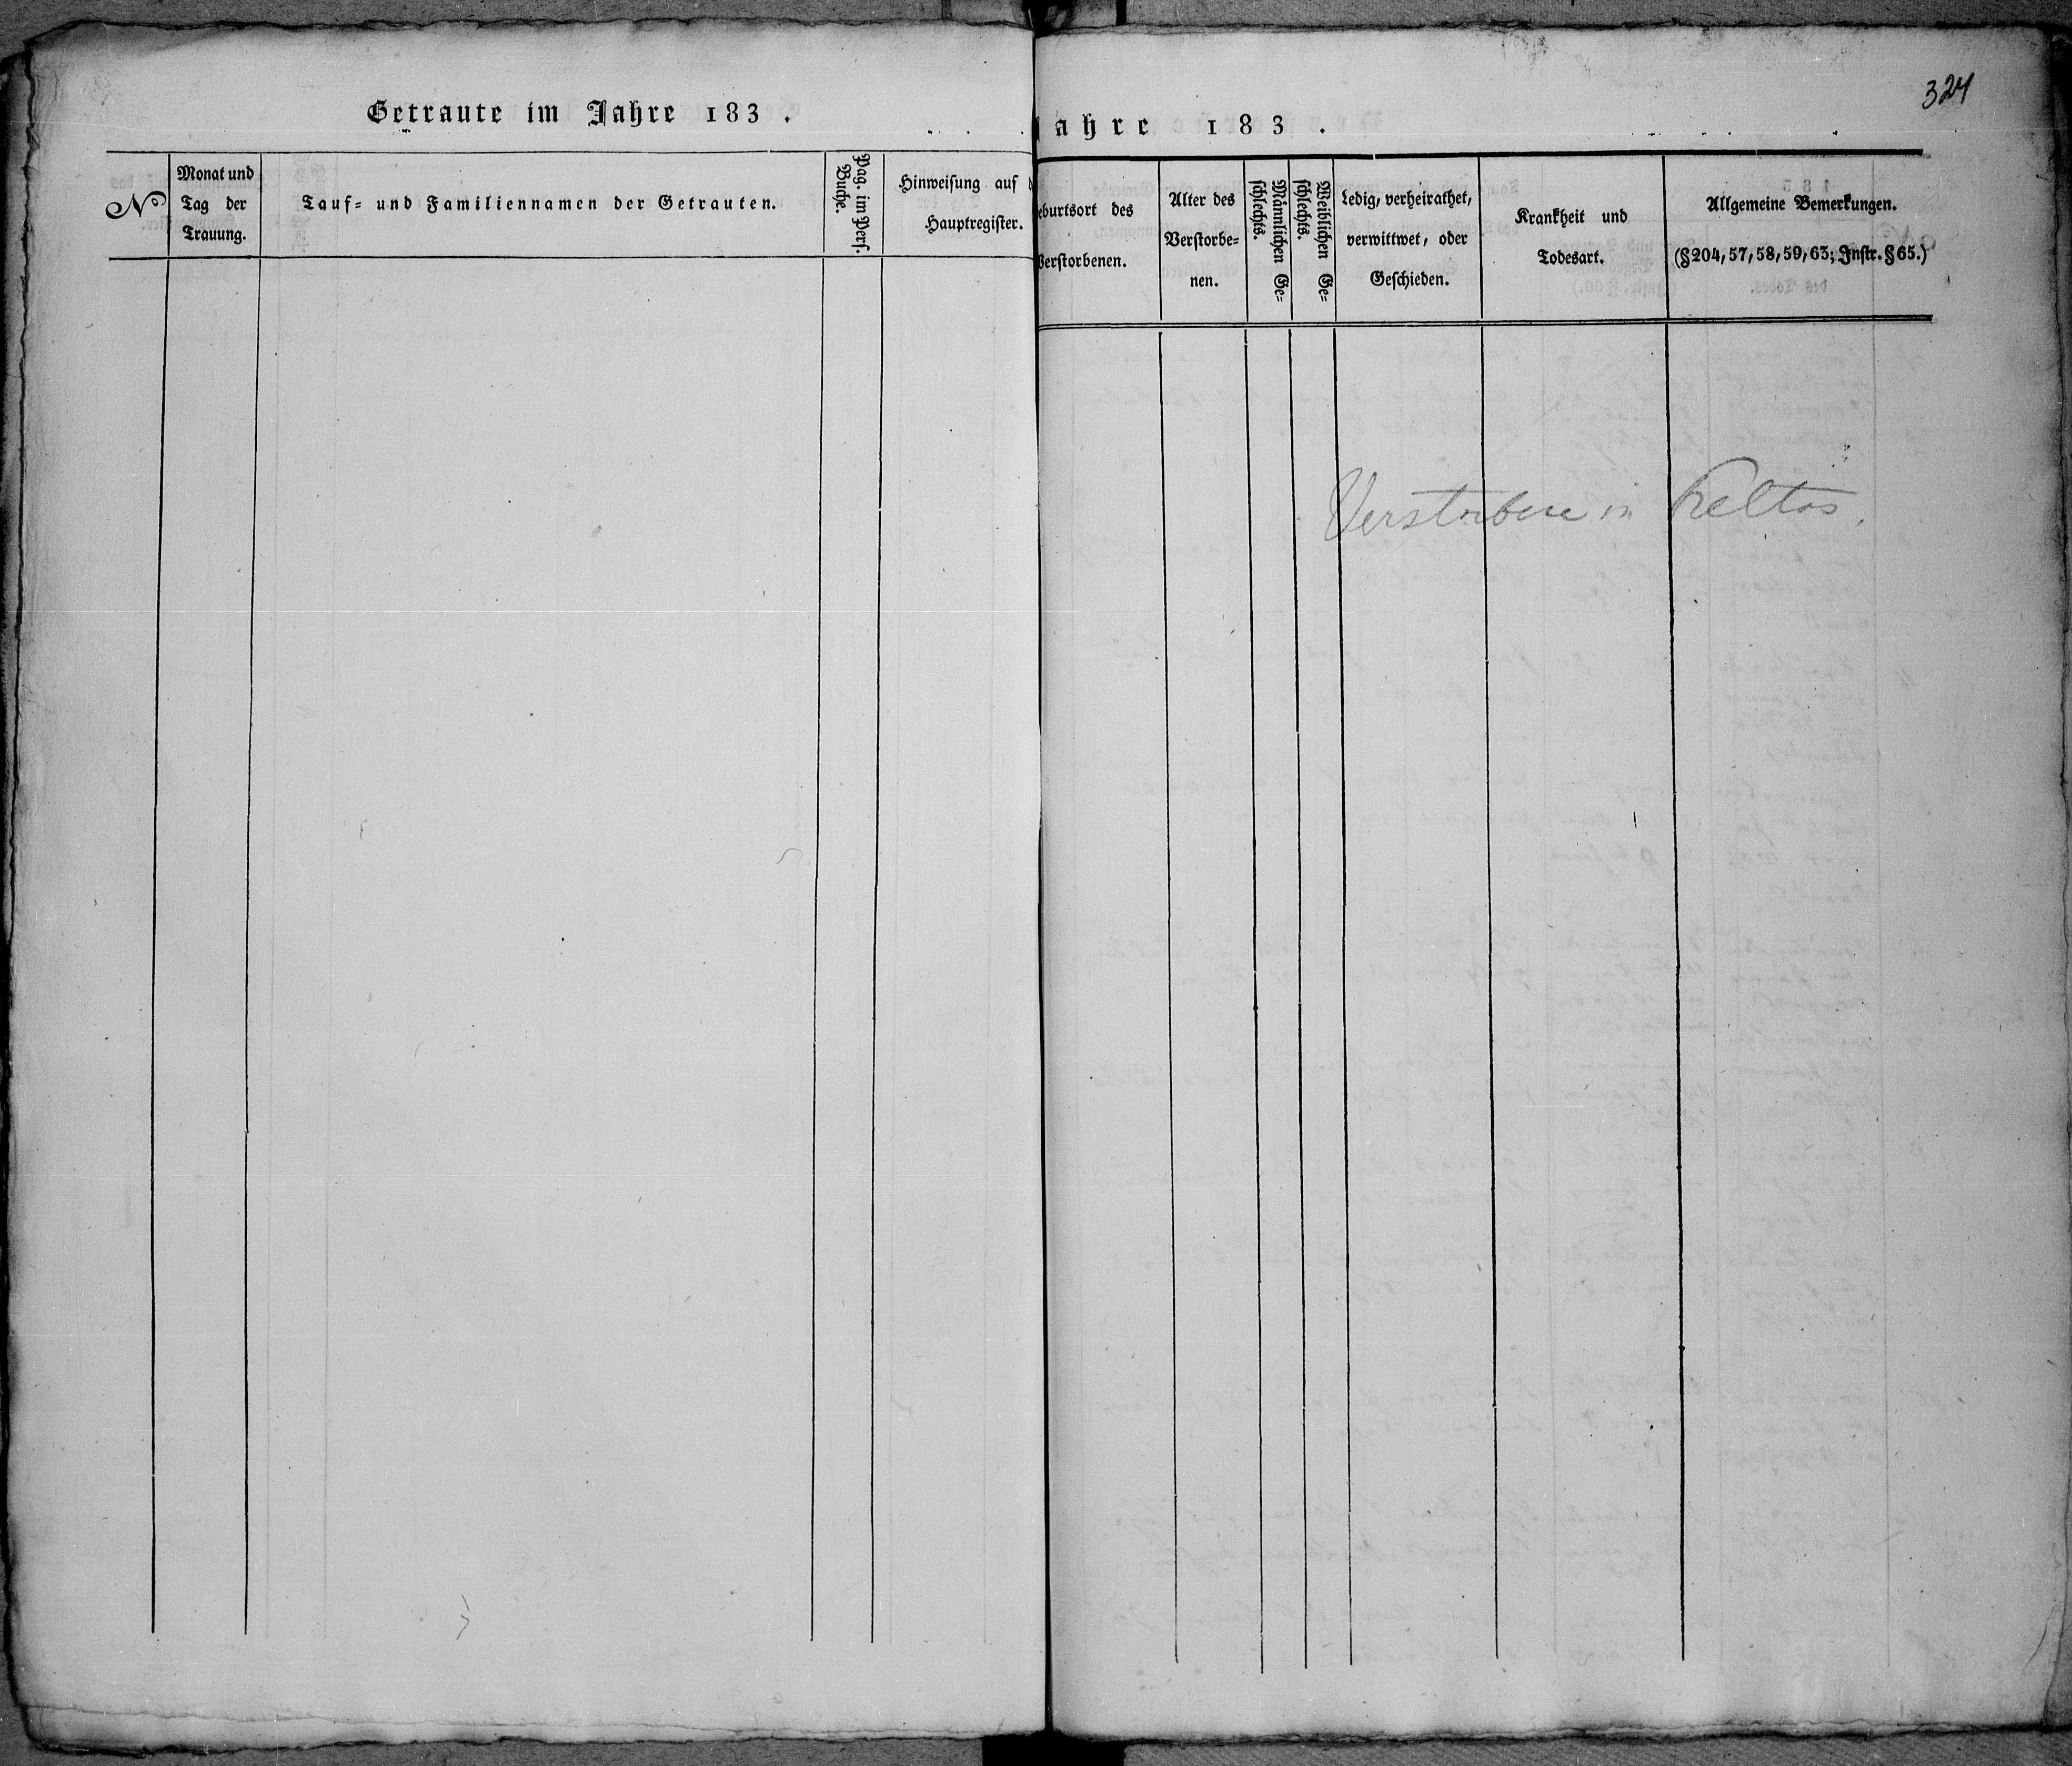 Getraute im Jahre 183 .
№
Monat und
Tag der
Trauung.
Tauf- und Familiennamen der Getrauten.
Pag. im Pers.
Buche.
Hinweisung auf d
Hauptregister.
324
ahre 183 .
eburtsort des
Verstorbenen.
Alter des
Verstorbe-
nen.
Männlichen Ge-
schlechts.
Weiblichen Ge-
schlechts.
Ledig, verheirathet,
verwittwet, oder
Geschieden.
Krankheit und
Todesart.
Allgemeine Bemerkungen.
(§204, 57, 58, 59, 63; Instr. § 65.)
Verstorbene in Keltos.